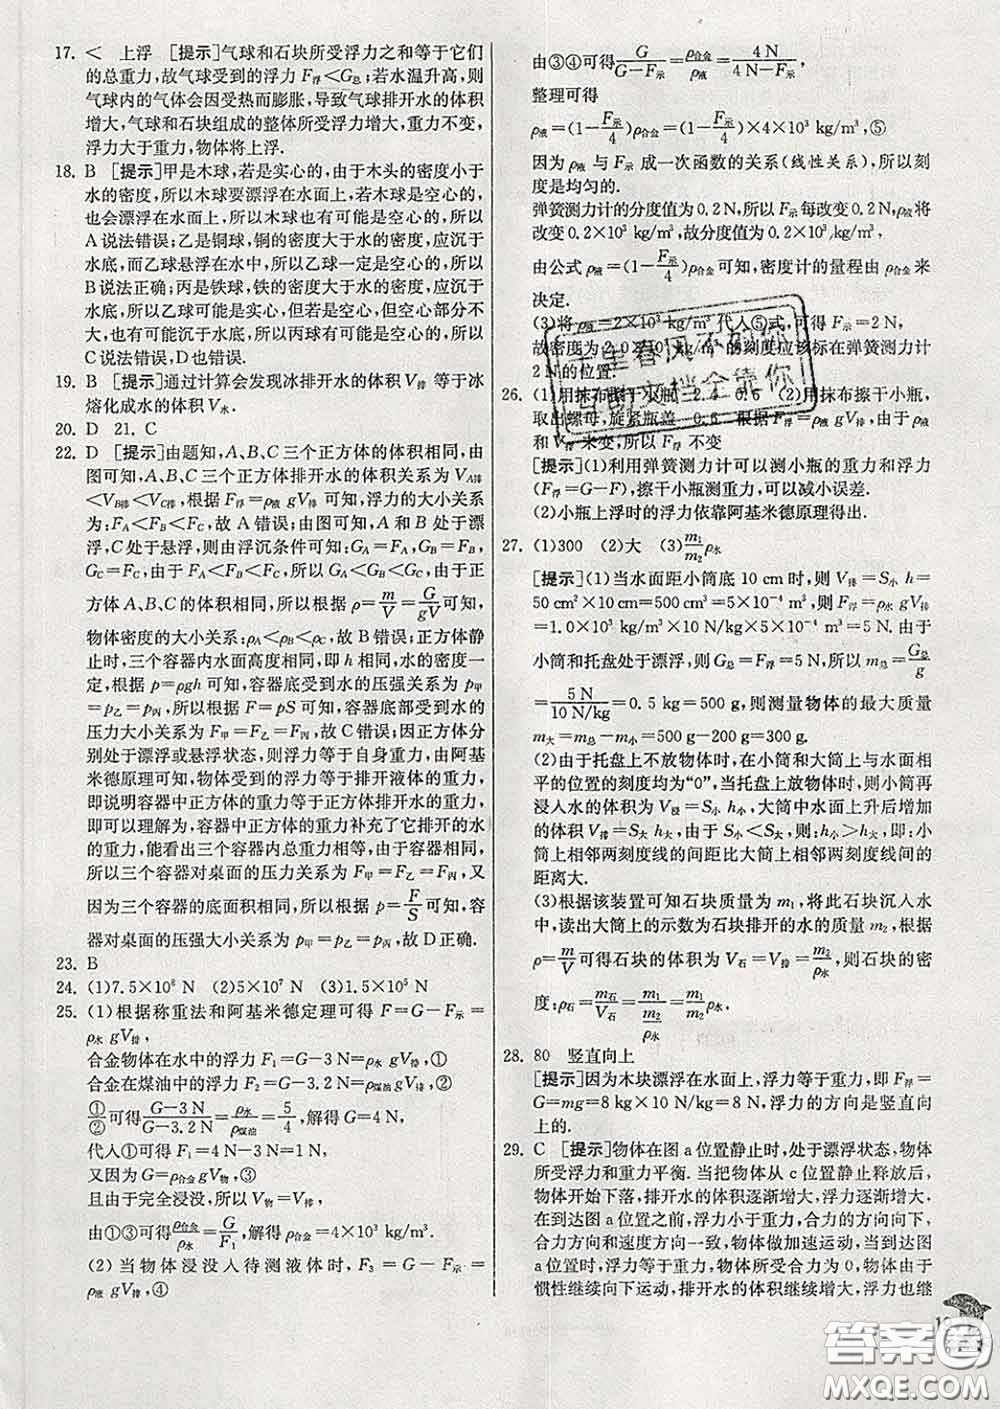 17. < 上浮 [提示]气球和石块所受浮力之和等于它们
的总重力,故气球受到的浮力 F浮<G总;若水温升高,则
气球内的气体会因受热而膨胀,导致气球排开水的体积
增大,气球和石块组成的整体所受浮力增大,重力不变,
浮力大于重力,物体将上浮.
18. B [提示]甲是木球,若是实心的,由于木头的密度小于
水的密度,所以木球要漂浮在水面上,若木球是空心的,
也会漂浮在水面上,所以木球也有可能是空心的,所以
A说法错误;乙是铜球,铜的密度大于水的密度,应沉于
水底,而乙球悬浮在水中,所以乙球一定是空心的,所以
B说法正确;丙是铁球,铁的密度大于水的密度,应沉于
水底,所以乙球可能是实心,但若是空心,但空心部分不
大,也有可能沉于水底,所以丙球有可能是空心的,所以
C说法错误,D也错误.
19. B [提示]通过计算会发现冰排开水的体积V排 等于冰
熔化成水的体积V水.
20. D 21. C
22. D [提示]由题知,A、B、C三个正方体的体积相同,由
图可知,A、B、C三个正方体排开水的体积关系为VA排
<VB排<VC排,根据 F浮=ρ液 gV排 可知,浮力的大小关系
为:FA<FB<FC,故A错误;由图可知,A和B处于漂
浮,C处于悬浮,则由浮沉条件可知:GA=FA,GB=FB,
GC=FC,由于 FA<FB<FC,所以GA<GB<GC,由于正
方体A、B、C的体积相同,所以根据 ρ=m/V=G/gV可知,
物体密度的大小关系:ρA<ρB<ρC,故B错误;正方体静
止时,三个容器内水面高度相同,即h相同,水的密度一
定,根据 p=ρgh 可知,容器底受到水的压强关系为 p甲
=p乙=p丙,所以根据 F=pS 可知,容器底部受到水的
压力大小关系为F甲=F乙=F丙,故C错误;因正方体分
别处于漂浮或悬浮状态,则浮力等于自身重力,由阿基
米德原理可知,物体受到的浮力等于排开液体的重力,
即说明容器中正方体的重力等于正方体排开水的重力,
即可以理解为,容器中正方体的重力补充了它排开的水
的重力,能看出三个容器内总重力相等,由于容器相同,
所以三个容器对桌面的压力关系为F甲=F乙=F丙,又
因为三个容器的底面积相同,所以根据 p=F/S可知,容
器对桌面的压强大小关系为 p甲=p乙=p丙,故D正确.
23. B
24. (1)7.5×10⁶ N (2)5×10⁷ N (3)1.5×10⁵ N
25. (1)根据称重法和阿基米德定理可得 F=G-F示=
ρ水 gV排,
合金物体在水中的浮力 F1=G-3 N=ρ水 gV排,①
合金在煤油中的浮力 F2=G-3.2 N=ρ煤油 gV排,②
①/②可得(G-3 N)/(G-3.2 N)=ρ水/ρ煤油=5/4,解得G=4 N,
代入①可得 F1=4 N-3 N=1 N,
又因为G=ρ合金 gV物,③
且由于完全浸没,所以 V物=V排,
由①③可得ρ合金/ρ水=G/F1,解得ρ合金=4×10³ kg/m³.
(2)当物体浸没入待测液体时,F3=G-F示=
ρ液 gV排,④
由③④可得G/(G-F示)=ρ合金/ρ液=4 N/(4 N-F示),
整理可得
ρ液=(1-F示/4)ρ合金=(1-F示/4)×4×10³ kg/m³,⑤
因为 ρ液 与 F示 成一次函数的关系(线性关系),所以刻
度是均匀的.
弹簧测力计的分度值为0.2 N,所以 F示每改变0.2 N,ρ液将
改变0.2×10³ kg/m³,故分度值为0.2×10³ kg/m³,
由公式 ρ液=(1-F示/4)ρ合金可知,密度计的量程由 ρ合金 来
决定.
(3)将 ρ液=2×10³ kg/m³ 代人⑤式,可得 F示=2 N,
故密度为2.0×10³ kg/m³ 的刻度应该标在弹簧测力计
2 N的位置.
26. (1)用抹布擦干小瓶 2.4 0.6 (2)用抹布擦干小瓶,
取出螺母,旋紧瓶盖 0.6 根据 F浮=ρ液 gV排,由于ρ液
和V排 未变,所以 F浮 不变
[提示](1)利用弹簧测力计可以测小瓶的重力和浮力
(F浮=G-F),擦干小瓶测重力,可以减小误差.
(2)小瓶上浮时的浮力依靠阿基米德原理得出.
27. (1)300 (2)大 (3)m1/m2 ρ水
[提示](1)当水面距小筒底10 cm时,则V排=S小 h=
50 cm²×10 cm=500 cm³=5×10⁻⁴ m³,则 F浮=ρ水 gV排
=1.0×10³ kg/m³×10 N/kg×5×10⁻⁴ m³=5 N.由于
小筒和托盘处于漂浮,则G总=F浮=5 N,所以 m总=G总/g
=5 N/(10 N/kg)=0.5 kg=500 g,则测量物体的最大质量
m大=m总-m小=500 g-200 g=300 g.
(2)由于托盘上不放物体时,在小筒和大筒上与水面相
平的位置的刻度均为“0”,当托盘上放物体时,则小筒再
浸入水的体积为 V浸=S小 h小,大筒中水面上升后增加
的体积V排=S大 h大,由于 S小<S大,则:h小>h大,即:小
筒上相邻两刻度线的间距比大筒上相邻两刻度线间的
距离大.
(3)根据该装置可知石块质量为 m1,将此石块沉入水
中,读出大筒上的示数为石块排开的水的质量 m2,根据
ρ=m/V可得石块的体积为 V石=V排=m2/ρ水,则石块的密
度:ρ石=m石/V石=m1/(m2/ρ水)=m1/m2 ρ水.
28. 80 竖直向上
[提示]因为木块漂浮在水面上,浮力等于重力,即 F浮=
G=mg=8 kg×10 N/kg=8 N,浮力的方向是竖直向
上的.
29. C [提示]物体在图a位置静止时,处于漂浮状态,物体
所受浮力和重力平衡.当把物体从c位置静止释放后,
物体开始下落,排开水的体积逐渐增大,浮力逐渐增大,
在到达图a位置之前,浮力小于重力,合力的方向向下,
合力方向和速度方向一致,物体做加速运动,当到达图
a位置时,浮力等于重力,物体所受合力为0,物体由于
惯性继续向下运动,排开水的体积继续增大,浮力也继
千里春风不如你
百町文档全靠你
答案圈
MXQE.COM